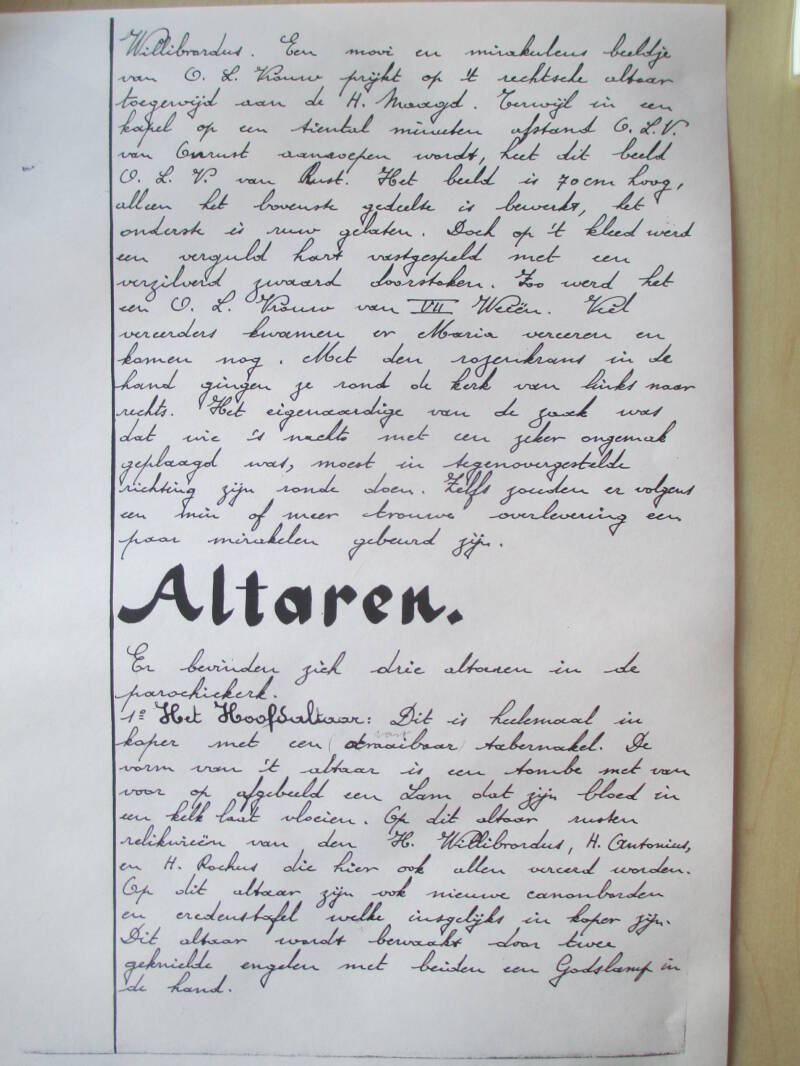 Willibrordus. Een mooi en mirakuleus beeldje
van O. L. Vrouw prijkt op 't rechtsche altaar
toegewijd aan de H. Maagd. Terwijl in een
kapel op een tiental minuten afstand O.L.V.
van Onrust aanroepen wordt, heet dit beeld
O. L. V. van Rust. Het beeld is 70cm hoog,
alleen het bovenste gedeelte is bewerkt, het
onderste is ruw gelaten. Doch op 't kleed werd
een verguld hart vastgespeld met een
verzilverd zwaard doorstoken. Zoo werd het
een O. L. Vrouw van VII Weeën. Viel
vereerders kwamen er Maria vereeren en
komen nog. Met den rozenkrans in de
hand gingen ze rond de kerk van links naar
rechts. Het eigenaardige van de zaak was
dat wie 's nachts met een zeker ongemak
geplaagd was, moest in tegenovergestelde
richting zijn ronde doen. Zelfs zouden er volgens
een min of meer trouwe overlevering een
paar mirakelen gebeurd zijn.
Altaren.
Er bevinden zich drie altaren in de
parochiekerk.
1º Het Hoofdaltaar: Dit is heelemaal in
koper met een (draaibaar) tabernakel. De
vorm van 't altaar is een tombe met van
voor op afgebeeld een Lam dat zijn bloed in
een kelk laat vloeien. Op dit altaar rusten
relikwieën van den H. Willibrordus, H. Antonius,
en H. Rochus die hier ook allen vereerd worden.
Op dit altaar zijn ook nieuwe canonborden
en credenstafel welke insgelijks in koper zijn.
Dit altaar wordt bewaakt door twee
geknielde engelen met beiden een Godslamp in
de hand.